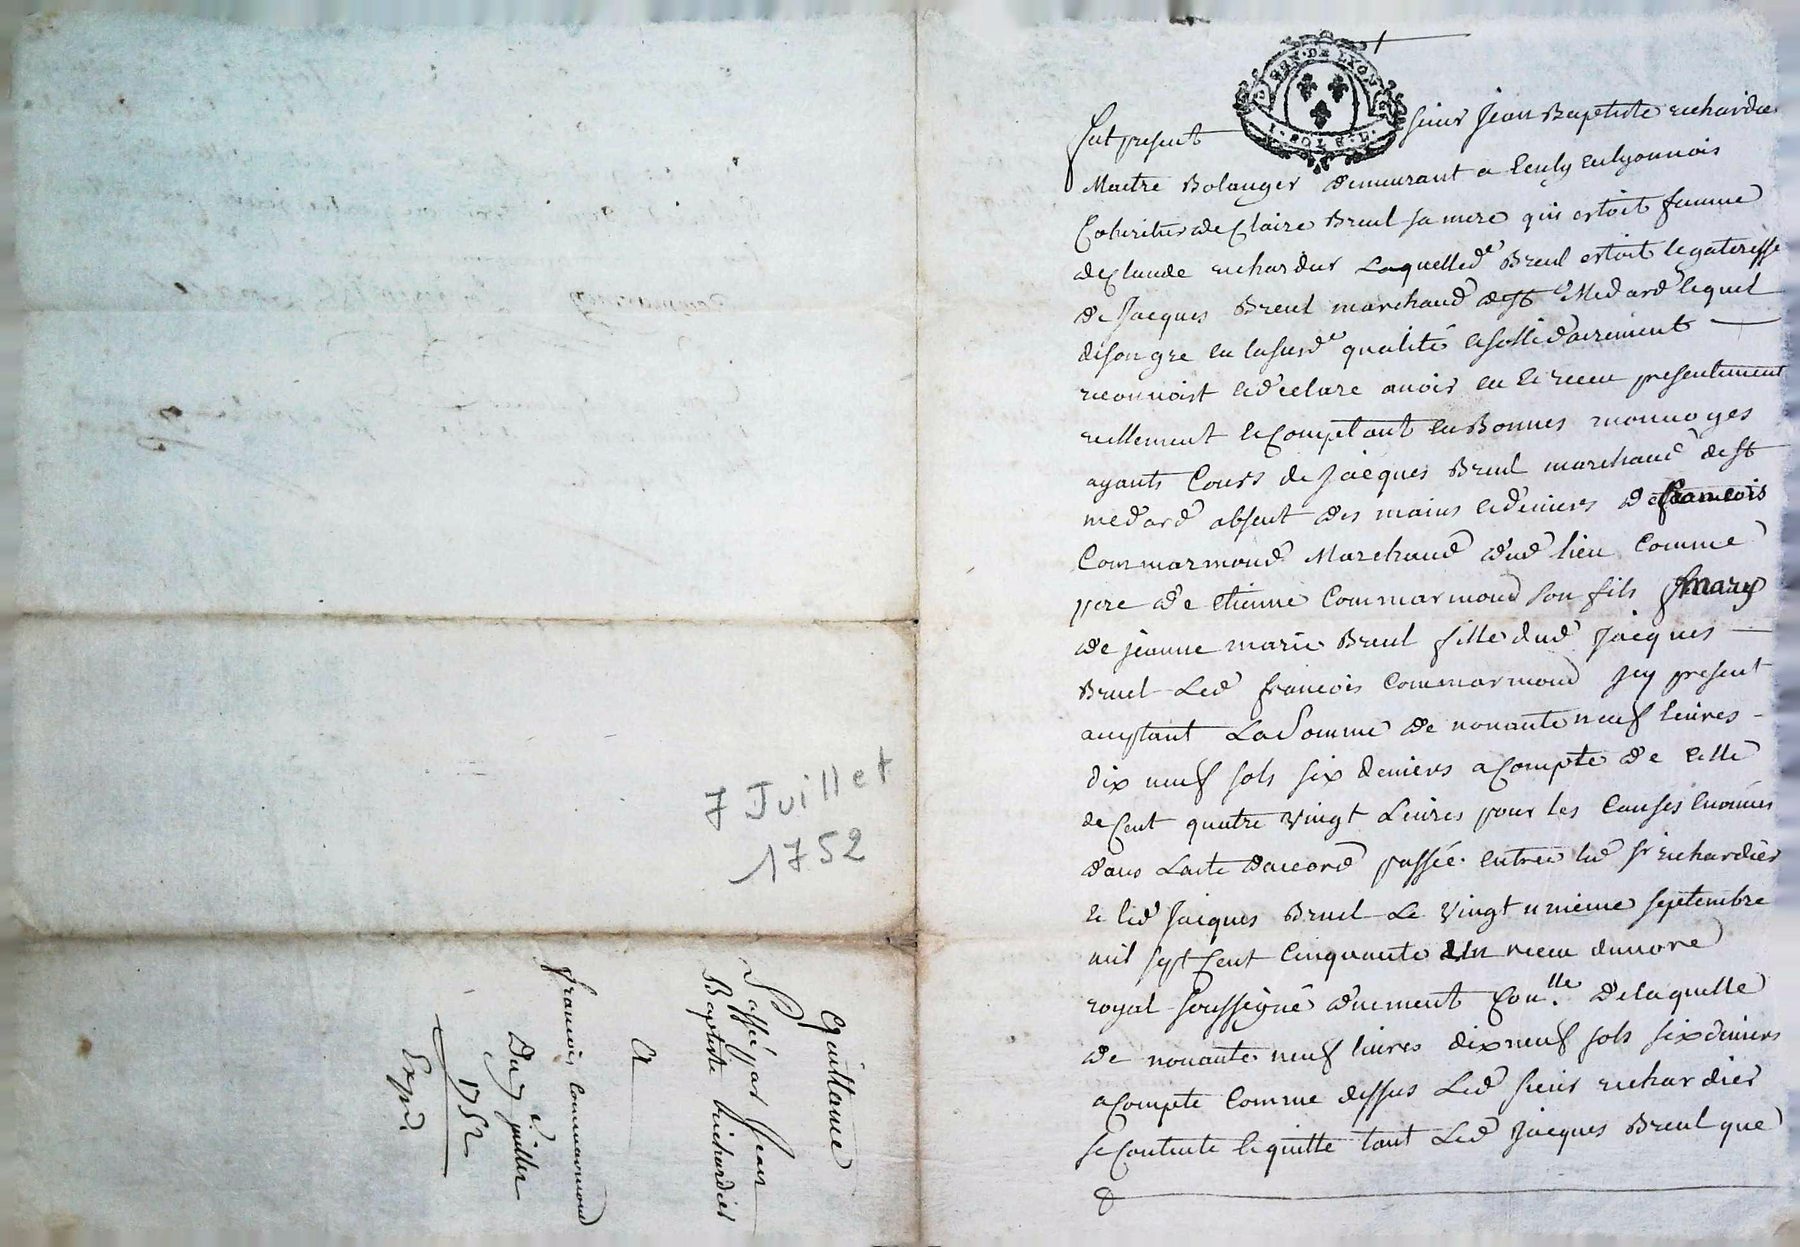 7 Juillet
1752
Quittance
Passé par Jean
Baptiste Richardier
A
francois Commarmond
Du 7e juillet
1752
Expé.
GEN. DE LYON
1. SOL. 8. D.
fut present sieur Jean Baptiste richardier
Maitre Bolanger demeurant a enlyonnois
Coheritier de Claire Breul sa mere qui estoit femme
de Claude richardier Laquelle de Breul estoit legateresse
de Jacques Breul marchand de st Medard lequel
de son gre en la susd.e qualité et sollidairement
reconnoist et declare avoir eu et receu presentement
reellement et Comptant en Bonnes monnoyes
ayants Cours de Jacques Breul marchand de st
medard absent des mains et deniers de francois
Commarmond Marchand dud lieu Comme
pere de etienne Commarmond son fils mary
de jeanne marie Breul fille dud Jacques
Breul Led francois Commarmond icy present
acceptant La Somme de nonante neuf livres
dix neuf sols six deniers a Compte de celle
de Cent quatre vingt Livres pour les Causes enoncées
dans Lacte daccord passée entre led sr richardier
et led Jacques Breul Le vingt unieme septembre
mil sept Cent Cinquante un receu du nore
royal soussigné duement Con.lle de laquelle
de nonante neuf livres dix neuf sols six deniers
a Compte Comme dessus Led sieur richardier
se Contente et quitte tant Led Jacques Breul que